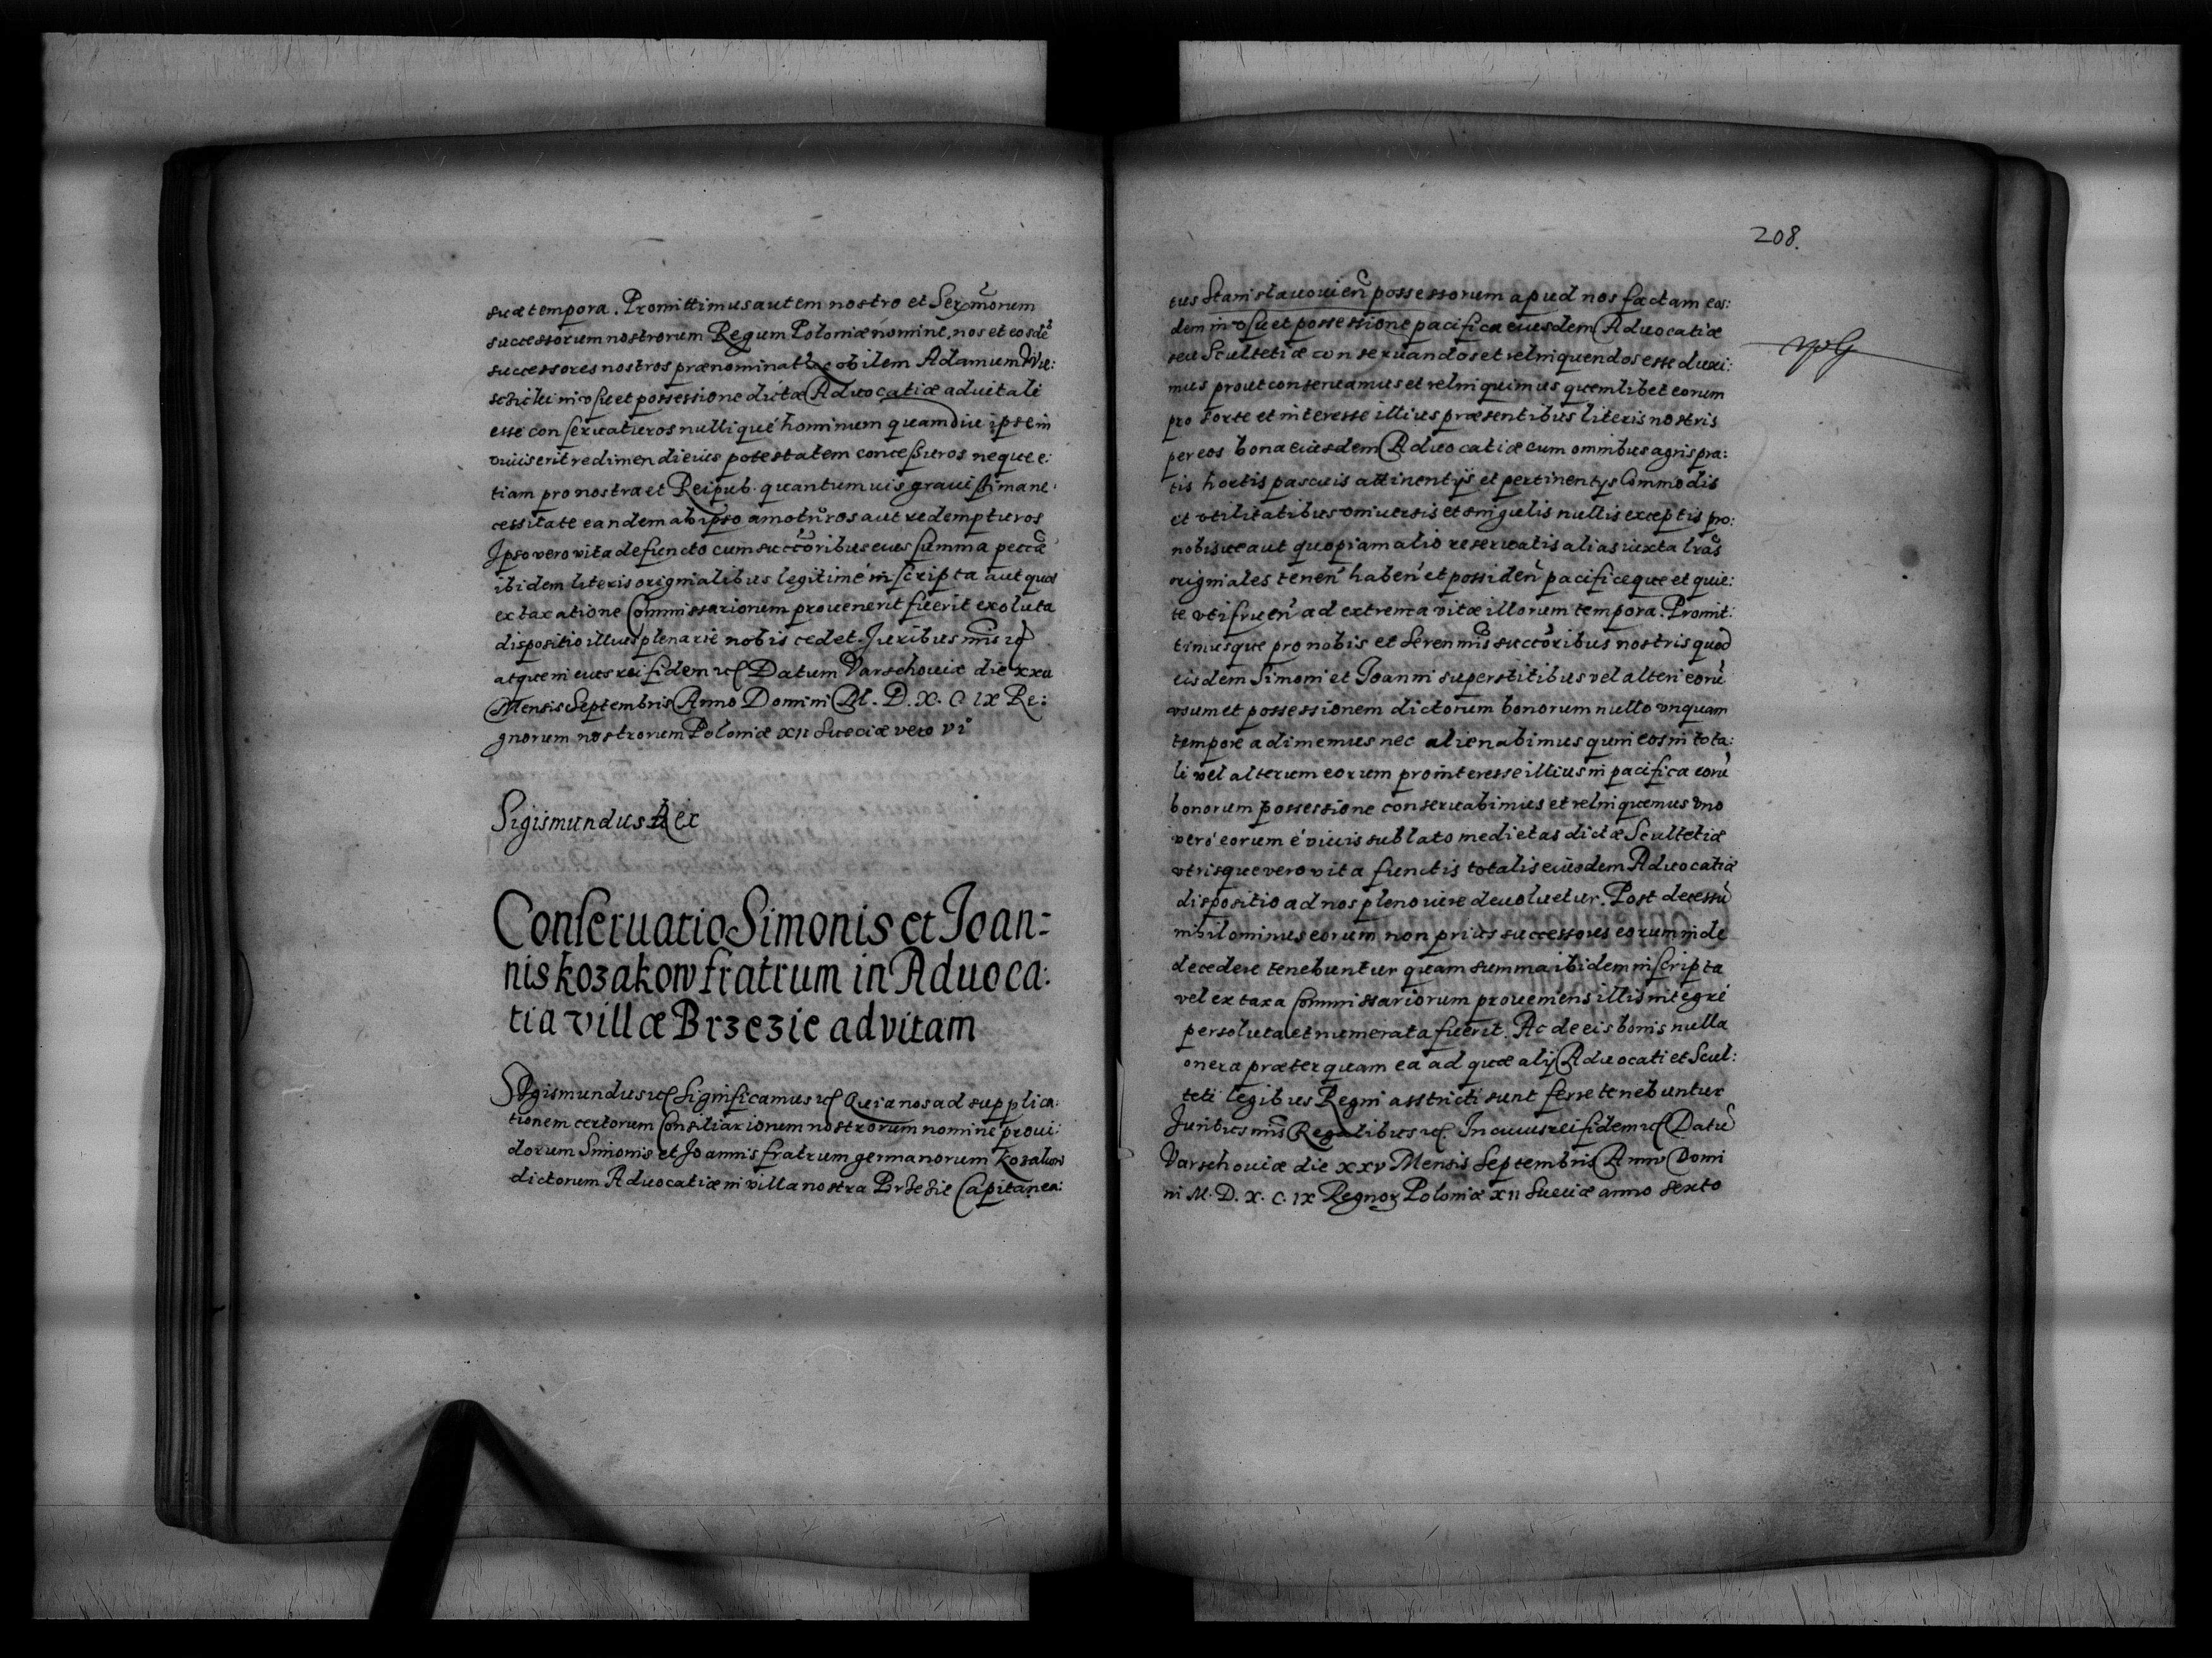 suæ tempora. Promittimus autem nostro et Serm̃orum
successorum nostrorum Regum Poloniæ nomine, nos et eosdẽ
successores nostros prænominat obilem Adamum
in vsu et possessione dictæ Aduocatiæ aduitali
esse conseruaturos nullique hominum quamdiu ipse in
viuis erit redimendi eius potestatem concessuros neque e:
tiam pro nostra et Reipub. quantumuis grauissima ne:
cessitate eandem ab ipso amoturos aut redempturos
Ipso vero vita defuncto cum succõribus eius summa
ibidem literis originalibus legitimé inscripta aut quæ
ex taxatione Commissariorum prouenerit fuerit exoluta
dispositio illius plenarie nobis cedet. Juribus nr̃is
atque in cuius rei fidem etc Datum Varschouiæ die xxv
Mensis Septembris Anno Domini M. D. X. C. IX Re:
gnorum nostrorum Poloniæ XII Sueciæ vero vi°
Sigismundus Rex
Conseruatio Simonis et Joan-
nis kozakow fratrum in Aduoca:
tia villæ Brzezie ad vitam
Sigismundus etc Significamus etc Quia nos ad supplica:
tionem certorum Consiliariorum nostrorum nomine proui:
dorum Simonis et Joannis fratrum germanorum kozakow
dictorum Aduocatiæ in villa nostra Brzezie Capitanea:
208.
tus Stanislauouien̄ possessorum apud nos factam eos:
dem in vsu et possessione pacifica eiusdem Aduocatiæ
seu Scultetiæ conseruandos et relinquendos esse duxi:
mus prout conseruamus et relinquimus quemlibet eorum
pro sorte et interesse illius præsentibus literis nostris
per eos bona eiusdem Aduocatiæ cum omnibus agris pra:
tis hortis pascuis attinentijs et pertinentys Commodis
et vtilitatibus vniuersis et singulis nullis exceptis pro:
nobisue aut quopiam alio reseruatis alias iuxta lr̃as
originales tenen̄ haben̄ et possiden̄ pacificeque et quie:
te vti fruen̄ ad extrema vitæ illorum tempora. Promit:
timusque pro nobis et Serenmis succõribus nostris quod
eisdem Simoni et Joanni superstitibus vel alteri eorũ
vsum et possessionem dictorum bonorum nullo vnquam
tempore adimemus nec alienabimus quin eos in tota:
li vel alterum eorum pro interesse illius in pacifica eorũ
bonorum possessione conseruabimus et relinquemus vno
veró eorum é viuis sublato medietas dictæ Scultetiæ
vtrisque vero vita functis totalis eiusdem Aduocatiæ
dispositio ad nos pleno iure deuoluetur. Post decessũ
nihilominus eorum non prius successores eorum inde
decedere tenebuntur quam summa ibidem inscripta
vel ex taxa Commissariorum proueniens illis integré
persoluta et numerata fuerit. Ac de eis bonis nulla
onera præterquam ea ad quæ alij Aduocati et Scul:
teti legibus Regni asstricti sunt ferre tenebuntur
Juribus nr̃is Regalibus etc. In cuius rei fidem etc Datũ
Varschouiæ die xxv Mensis Septembris Anno Domi
ni M. D. X. C. IX Regnor̨ Poloniæ XII Sueciæ anno sexto